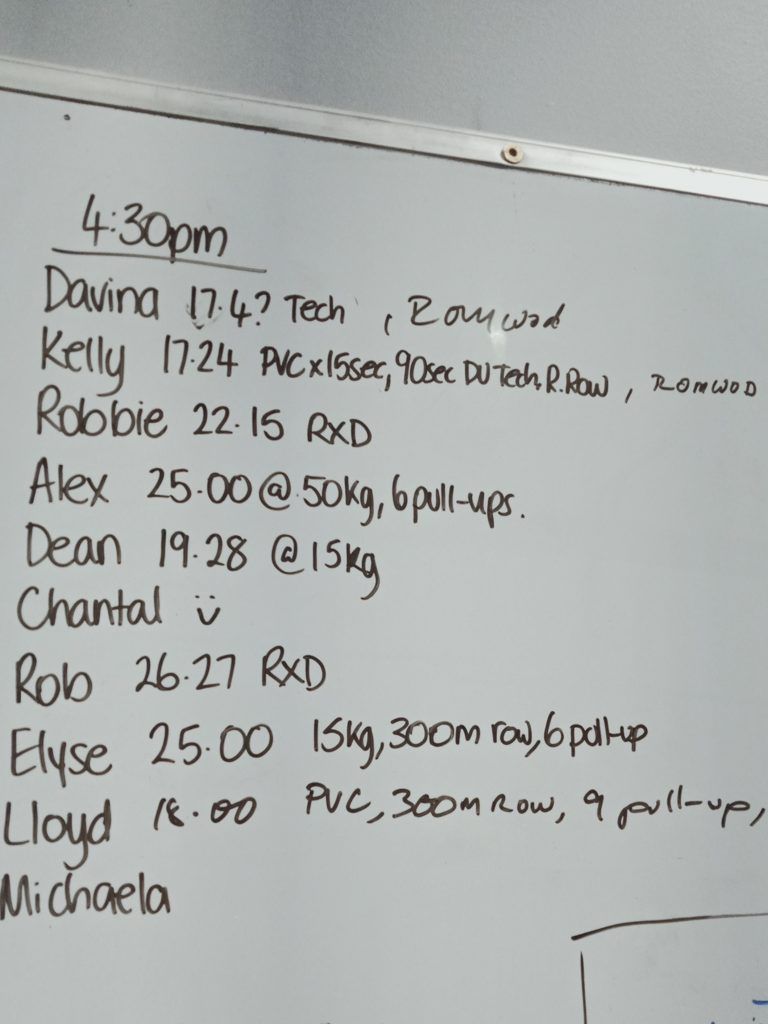 4:30pm
Davina 17.4? Tech , Romwod
Kelly 17.24 PVC x 15sec, 90sec DU Tech, R.Row , ROMWOD
Robbie 22.15 RXD
Alex 25.00 @ 50kg, 6 pull-ups.
Dean 19.28 @ 15kg
Chantal
Rob 26.27 RXD
Elyse 25.00 15kg, 300m row, 6 pull-up
Lloyd 18.00 PVC, 300m Row, 9 pull-up,
Michaela